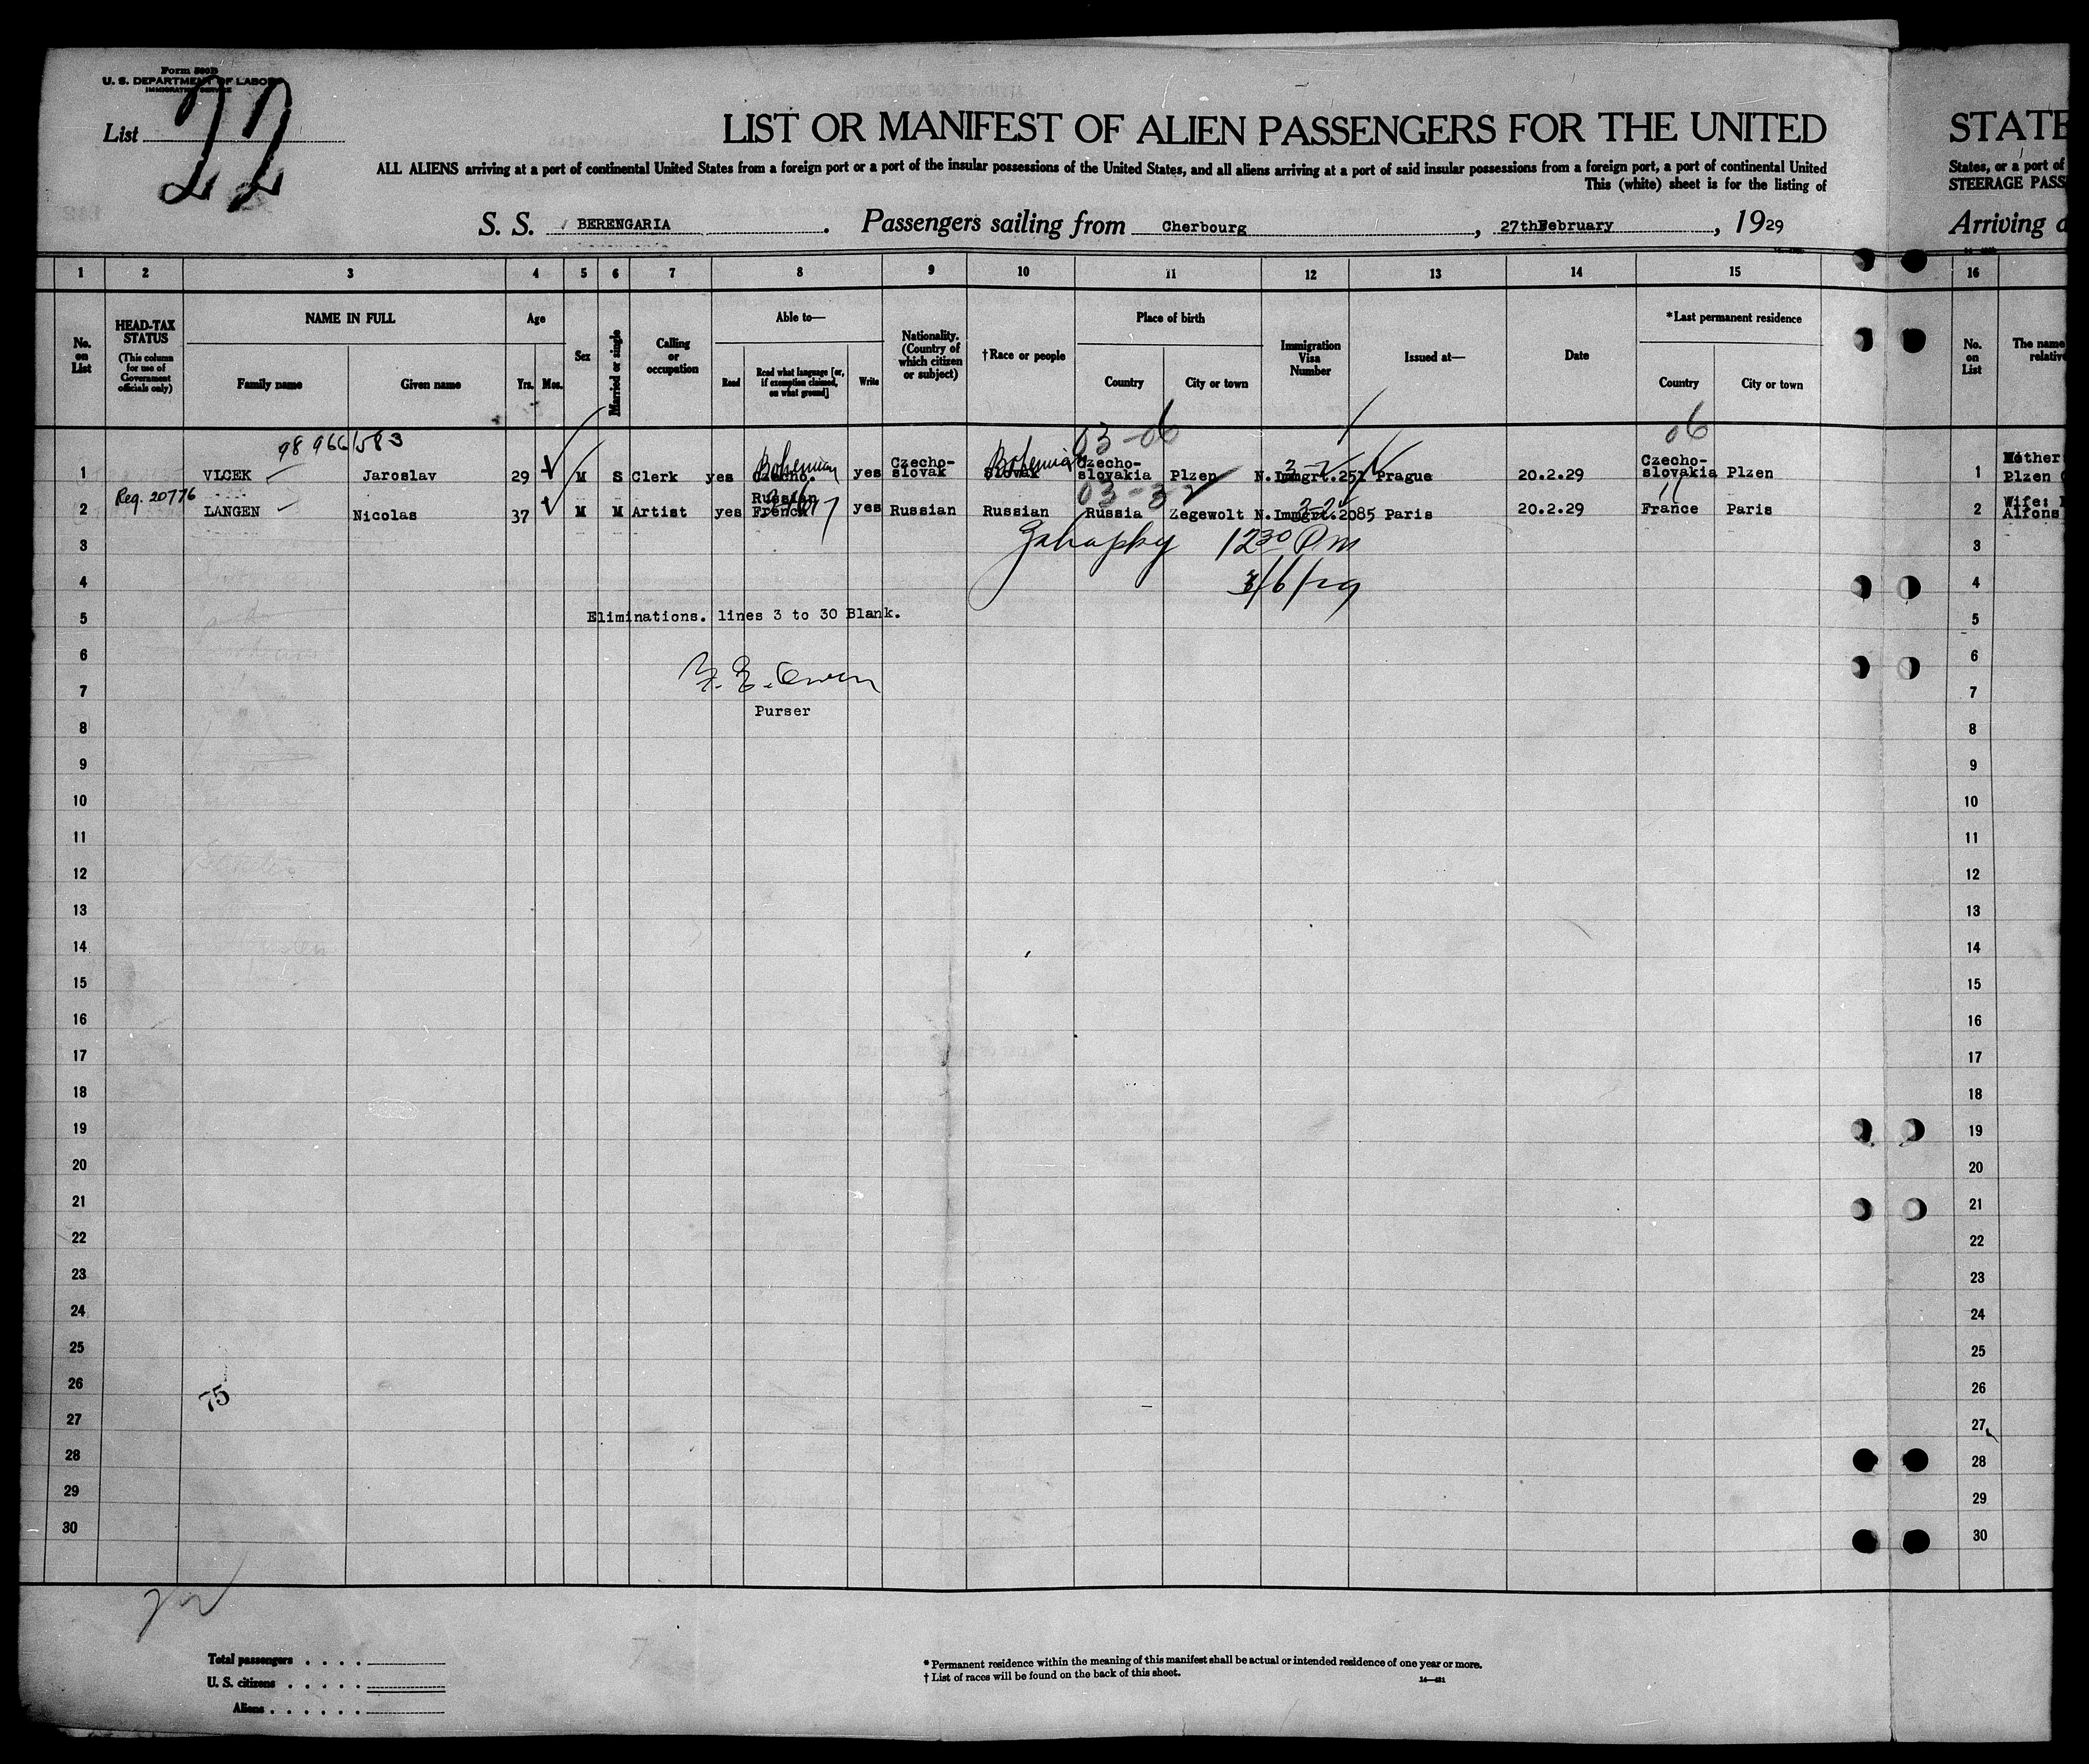 Form 500B
U. S. DEPARTMENT OF LABOR
IMMIGRATION SERVICE
List 22
LIST OR MANIFEST OF ALIEN PASSENGERS FOR THE UNITED
STATE
ALL ALIENS arriving at a port of continental United States from a foreign port or a port of the insular possessions of the United States, and all aliens arriving at a port of said insular possessions from a foreign port, a port of continental United
States, or a port of
This (white) sheet is for the listing of
STEERAGE PASS
S. S. BERENGARIA. Passengers sailing from Cherbourg, 27thFebruary, 1929
Arriving
1 2 3 4 5 6 7 8 9 10 11 12 13 14 15 16
No. on List
HEAD-TAX STATUS
(This column for use of Government officials only)
NAME IN FULL
Family name Given name
Age
Yrs. Mos.
Sex
Married or single
Calling or occupation
Able to—
Read
Read what language [or, if exemption claimed, on what ground]
Write
Nationality. (Country of which citizen or subject)
†Race or people
Place of birth
Country City or town
Immigration Visa Number
Issued at—
Date
*Last permanent residence
Country City or town
No. on List
The name
relativ
98 966/583 03-06 06
1 VLCEK Jaroslav 29 M S Clerk yes Bohemian Czecho. yes Czecho-slovak Bohemian Slovak Czecho-slovakia Plzen N.Immgrt.251 Prague 20.2.29 Czecho-slovakia Plzen 1 Mother:
Plzen
Reg. 20776 03-3 11
2 LANGEN Nicolas 37 M M Artist yes Russian French yes Russian Russian Russia Zegewolt N.Immgrt.2085 Paris 20.2.29 France Paris 2 Wife:
Alfons
3 12 30 Pm 3
4 3/6/29 4
5 Eliminations. lines 3 to 30 Blank. 5
6 6
7 Owen 7
Purser
8 8
9 9
10 10
11 11
12 12
13 13
14 14
15 15
16 16
17 17
18 18
19 19
20 20
21 21
22 22
23 23
24 24
25 25
26 26
75
27 27
28 28
29 29
30 30
Total passengers . . . .
U. S. citizens . . . . .
Aliens . . . . . .
* Permanent residence within the meaning of this manifest shall be actual or intended residence of one year or more.
† List of races will be found on the back of this sheet.